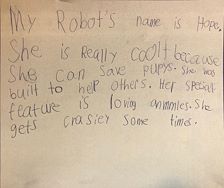 My Robot's name is Hope.
She is Really coolt because
She can save pupys. She was
built to help others. Her special
feature is loving animmles. She
gets crasier some times.